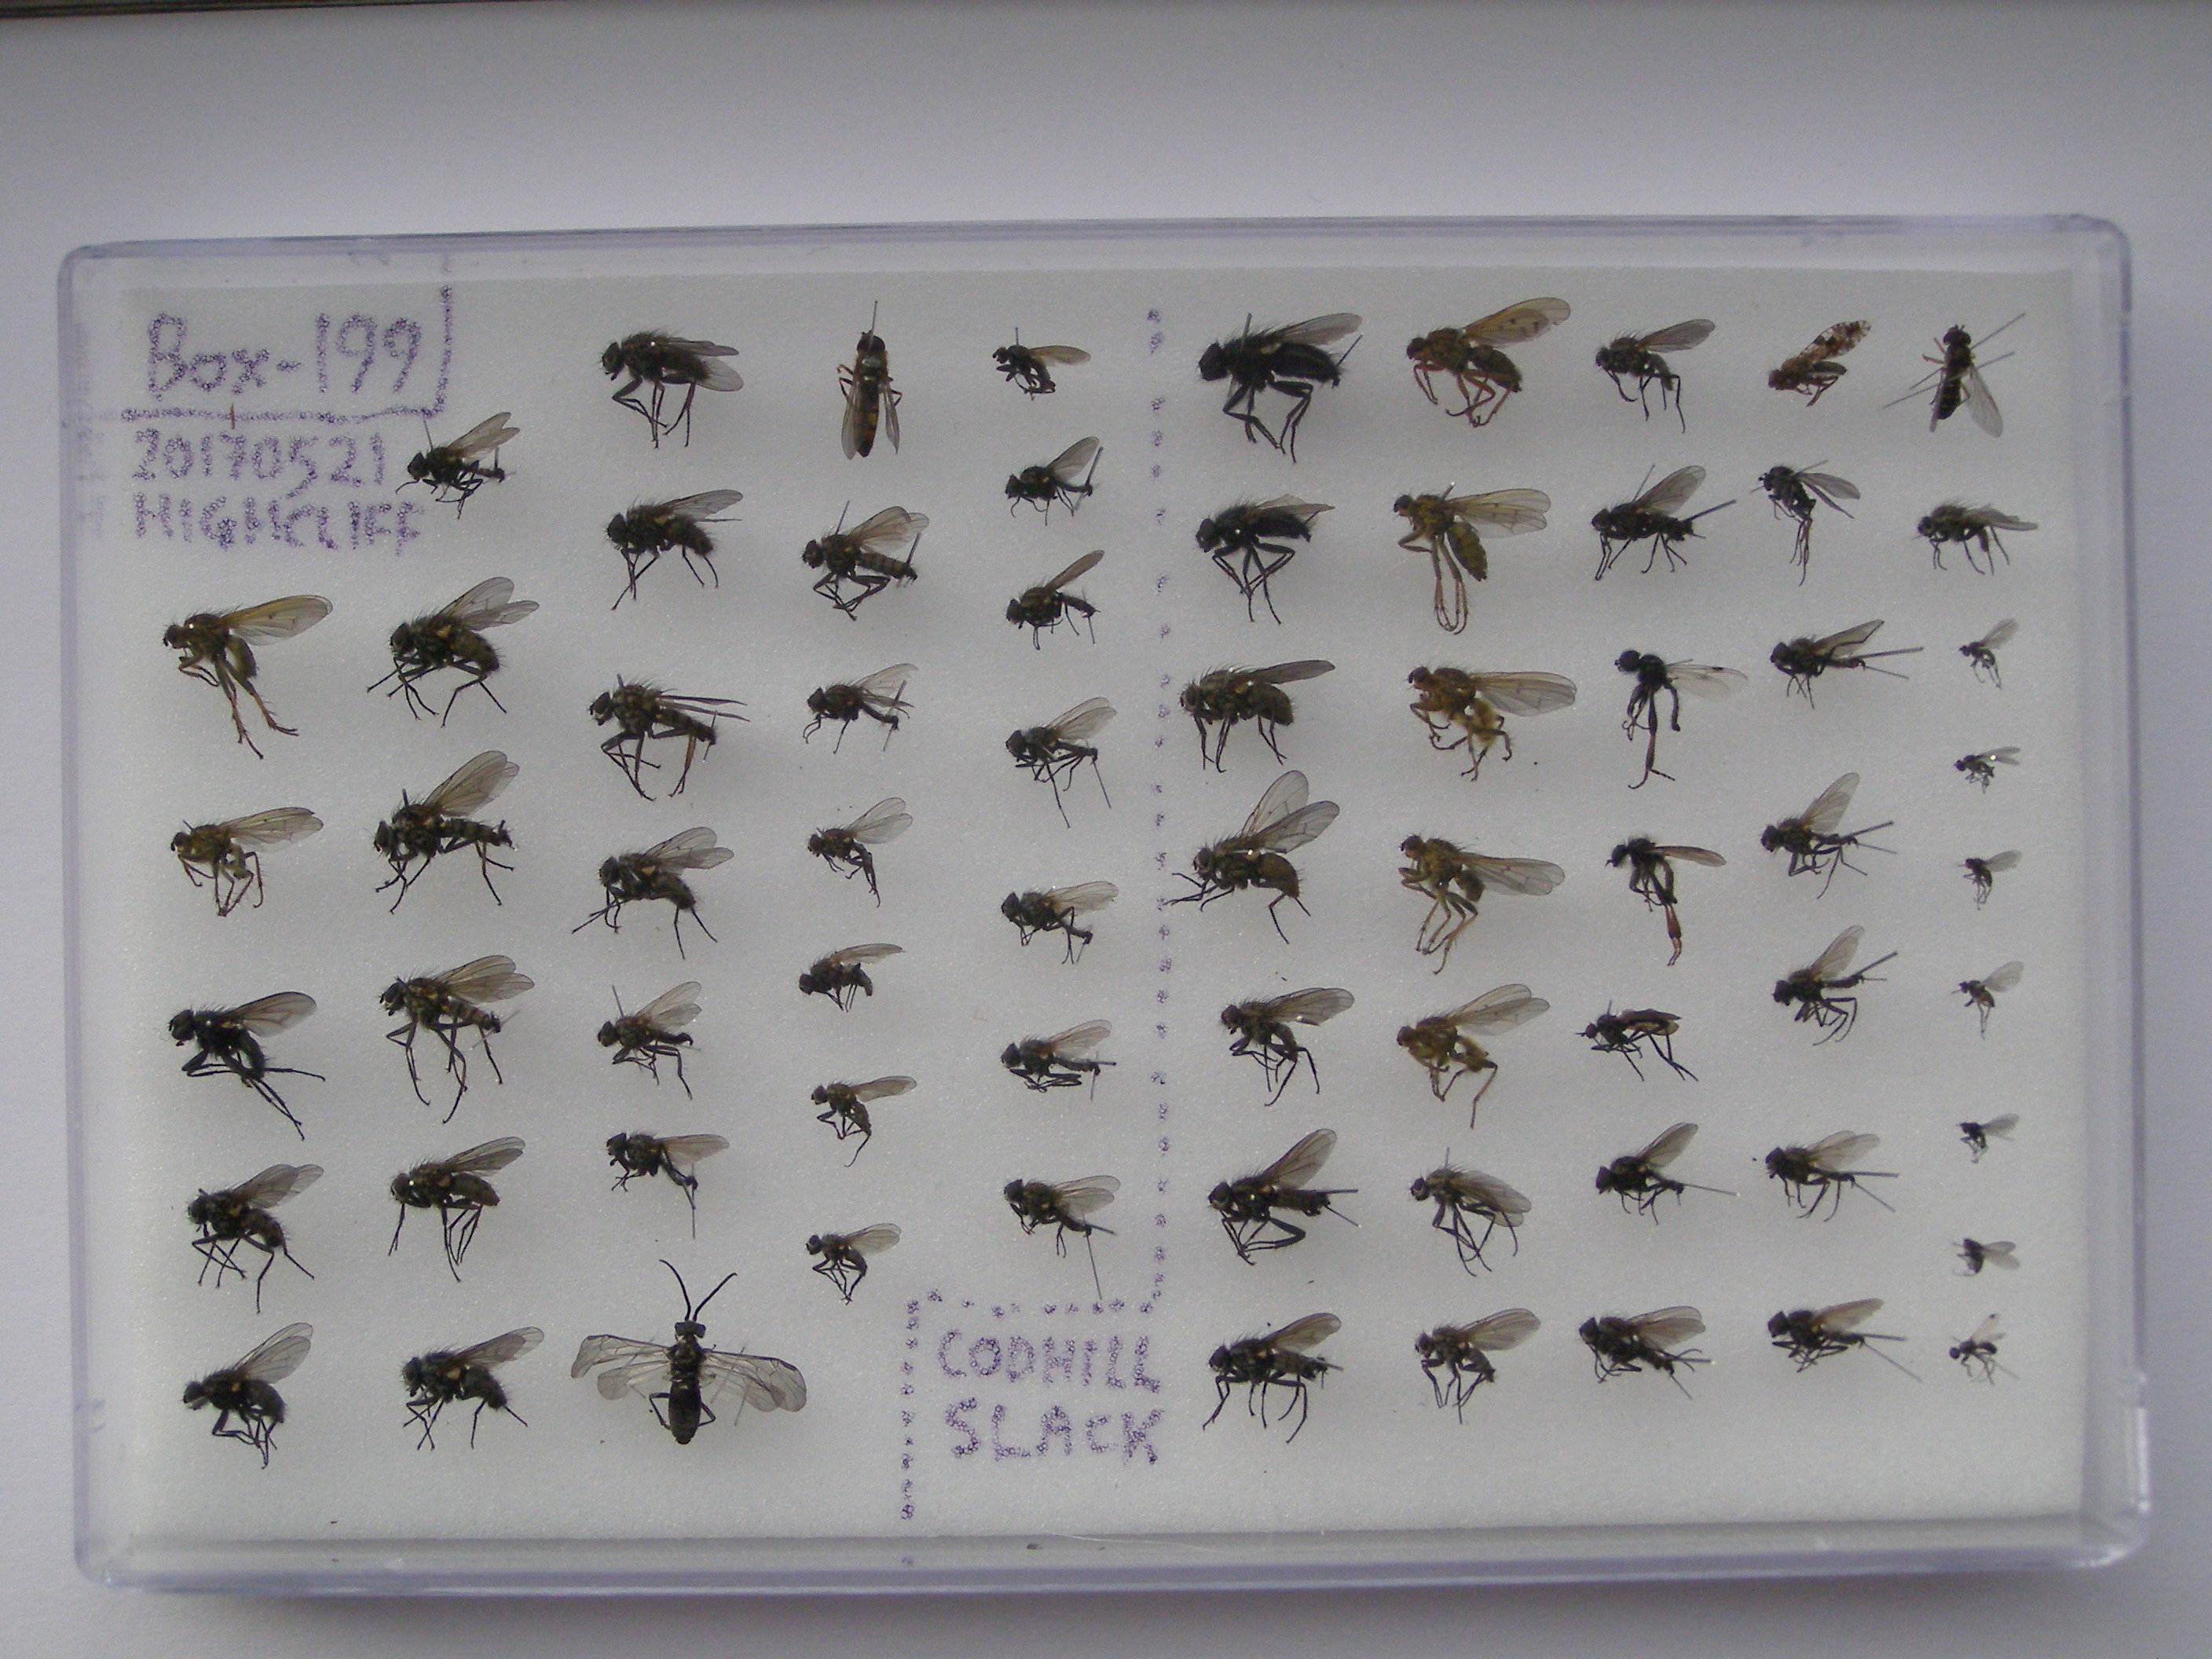 Box-199
20170521
HIGHCLIFF
CODHILL
SLACK